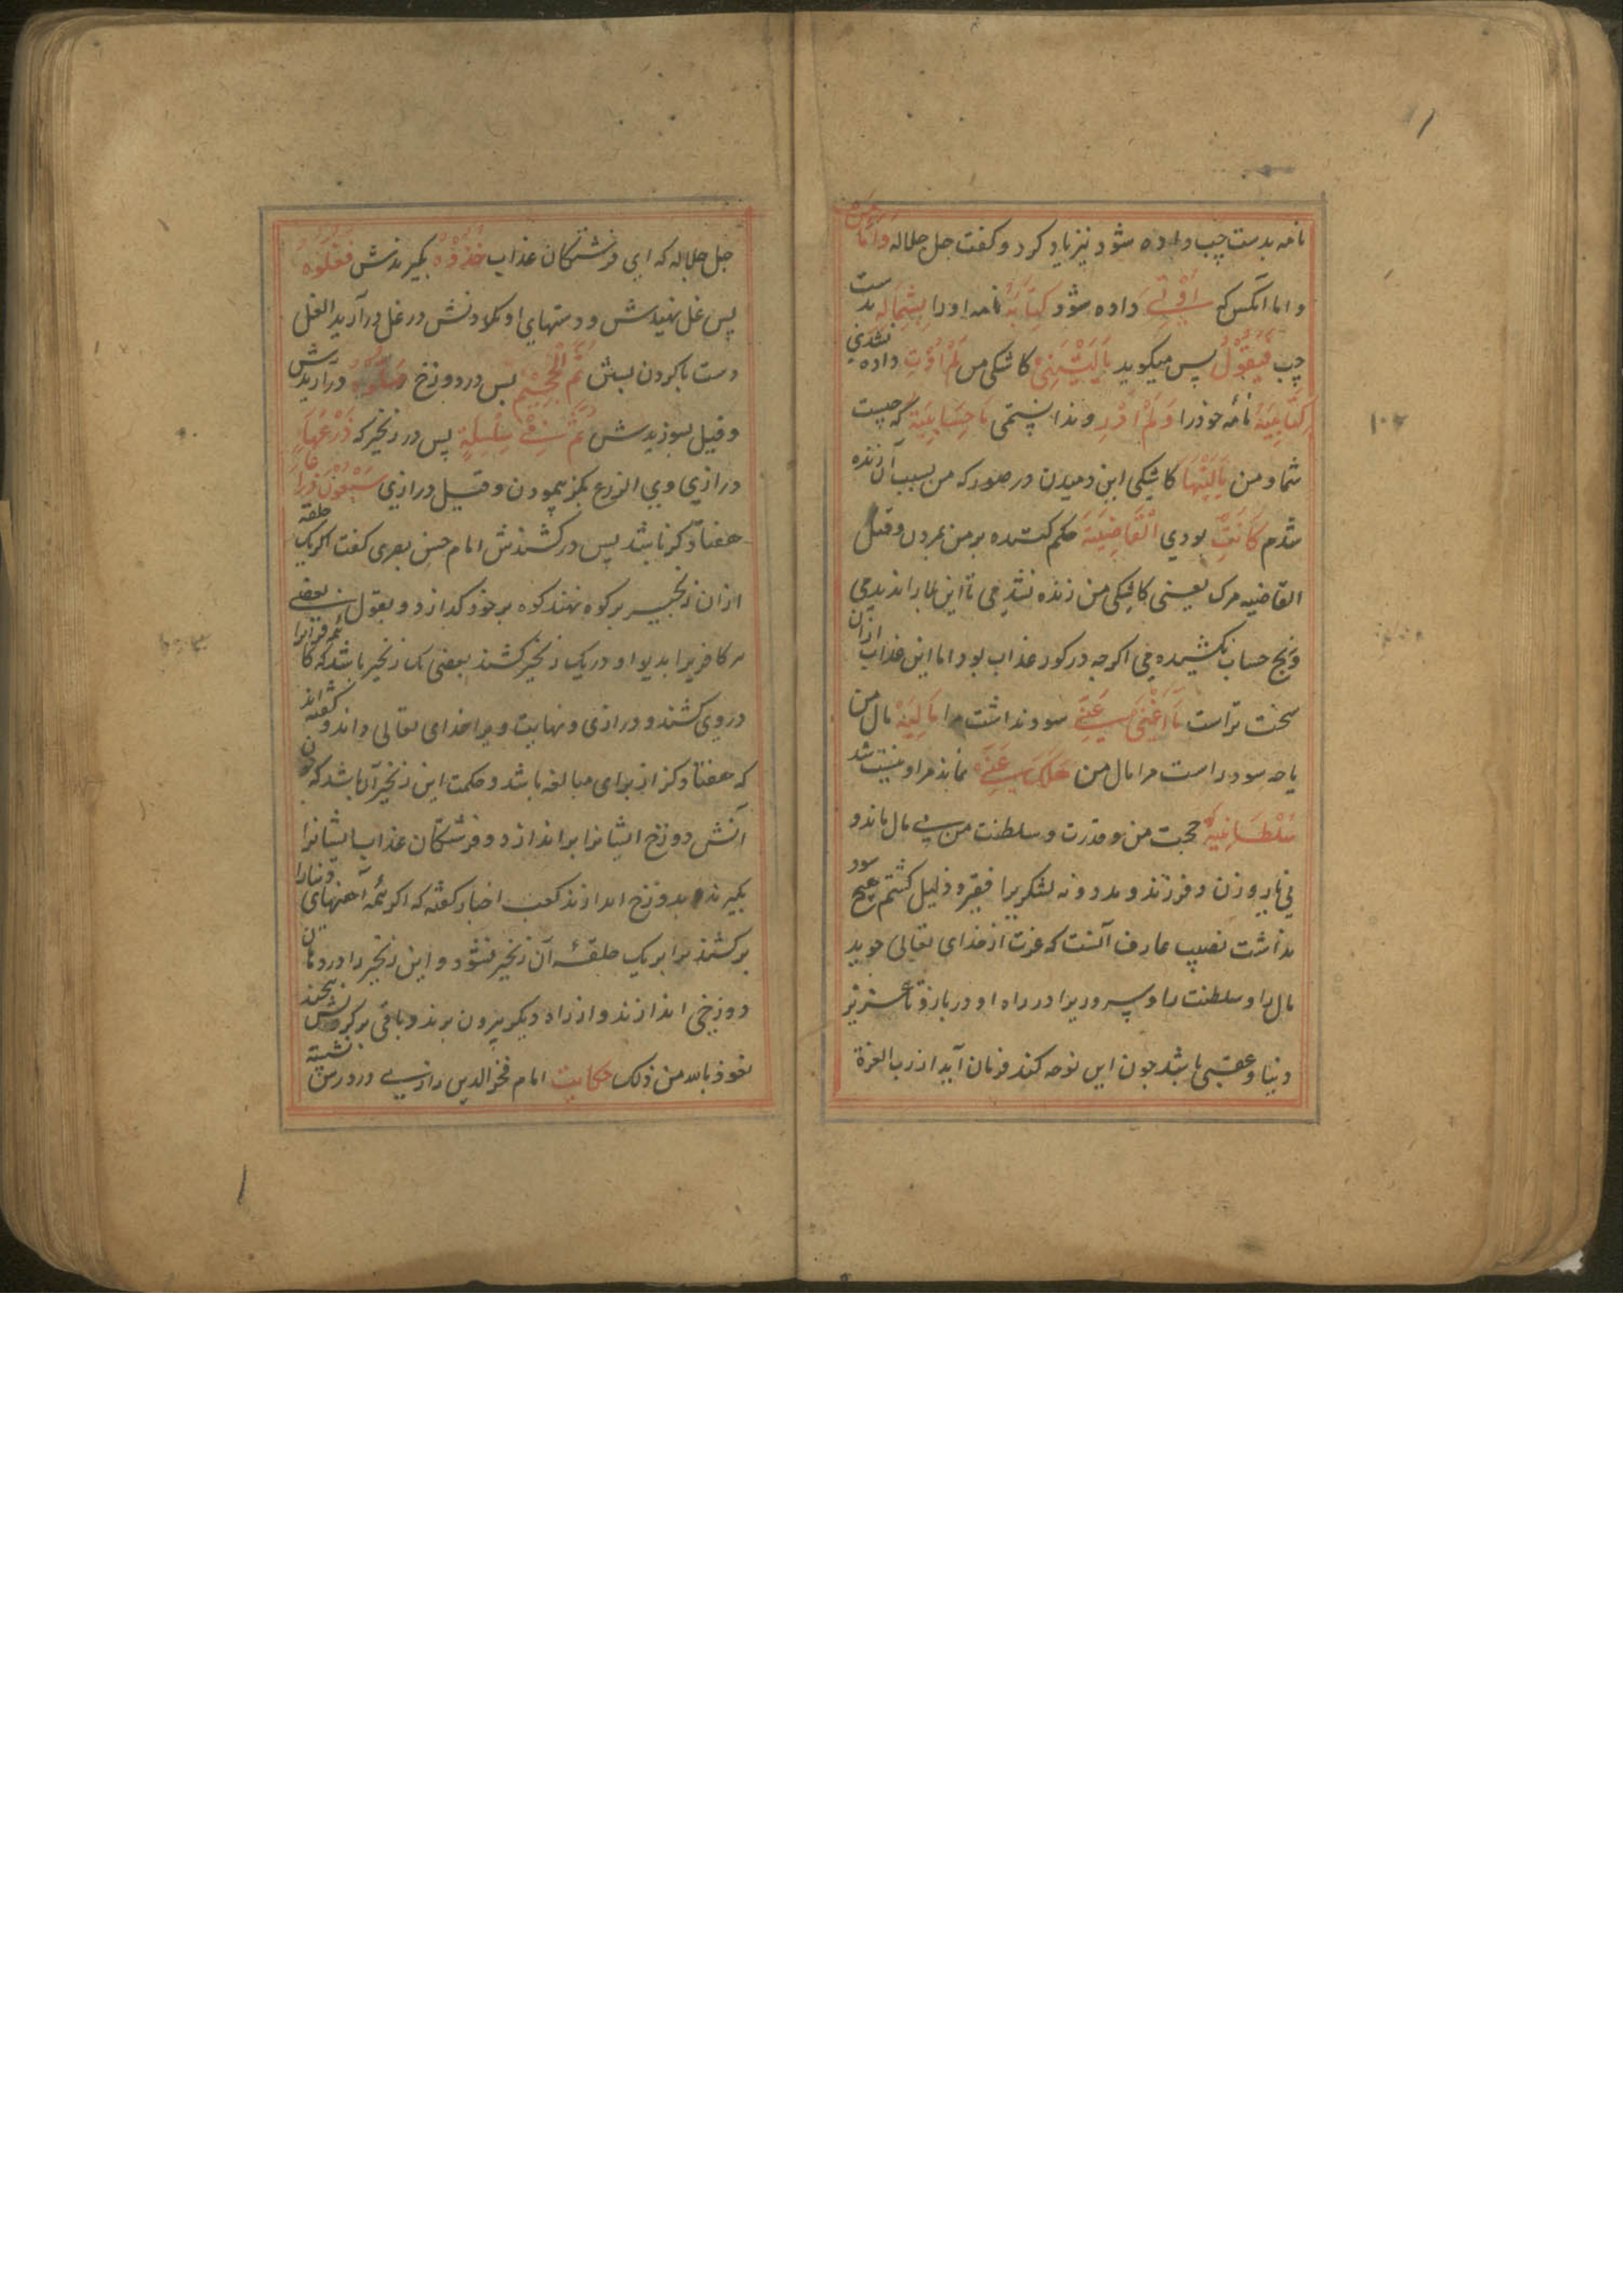 نامه بدست چپ داده شود نیز یاد کرد و کفت جل جلاله وَاَمَّا مَنْ
و اما آنکس که اُوْتِیَ داده شود کِتَابَهُ نامه او را بِشِمَالِهِ بدست
چپ فَیَقُوْلُ پس میکوید یَالَیْتَنِیْ کاشکی من لَمْ اُوْتَ داده نشدی
کِتَابِیَهْ نامهٔ خود را وَلَمْ اَدْرِ و ندانستمی مَا حِسَابِیَهْ که چیست
شما و من یَالَیْتَهَا کاشکی این دمیدن در صور که من بسبب آن زنده
شدم کَانَتِ بودی الْقَاضِیَةَ حکم کننده بر من بمردن و قیل
القاضیه مرک یعنی کاشکی من زنده نشدمی تا این بلا را ندیدمی
و رنج حساب نکشیدمی اکرچه در کور عذاب بود اما این عذاب ازان
سخت تر است مَا اَغْنٰی عَنِّیْ سود نداشت مرا مَالِیَهْ مال من
یا چه سود داست مرا مال من هَلَکَ عَنِّیْ نماند مرا و نیست شد
سُلْطَانِیَهْ حجت من و قدرت و سلطنت من بی مال ماندو
بی یار و زن و فرزند و مدد و نه لشکر یرا فقیر و ذلیل کشتم هیچ سود
نداشت نصیب عارف آنست که عزت از خدای تعالی جوید
مال را و سلطنت را و سروری را در راه او در بازد تا عزیز
دنیا و عقبی باشد چون این نوحه کند فرمان آید از رب العزة
جل جلاله که ای فرشتکان عذاب خُذُوْهُ بکیریدش فَغُلُّوْهُ
پس غل نهیدش و دستهای او بکلاونش در غل درآرید الغل
دست با کردن بستن ثُمَّ الْجَحِیْمَ پس در دوزخ صَلُّوْهُ درآریدش
و قیل بسوزیدش ثُمَّ فِیْ سِلْسِلَةٍ پس در زنجیر که ذَرْعُهَا
درازی وی الذرع بکز پیمودن و قیل درازی سَبْعُوْنَ ذِرَاعًا
هفتاد کز باشد پس در کشندش امام حسن بصری کفت اکر یک حلقه
ازان زنجیر بر کوه نهند کوه بر خود کدازد و بقول بعضی
هر کافریرا بدیو او در یک زنجیر کشند بعضی یک زنجیر باشد که همه کافرانرا
در وی کشند و درازی و نهایت ویرا خدای تعالی داند و کفته اند
که هفتاد کز از برای مبالغه باشد و حکمت این زنجیر آن باشد که چون
آتش دوزخ ایشانرا براندازد و فرشتکان عذاب ایشانرا
بکیرند و بدوزخ اندازند کعب احبار کفته که اکر همه آهنهای دنیا را
بر کشند برابر یک حلقهٔ آن زنجیر نشود و این زنجیر را در دهان
دوزخی اندازند و از راه دیکر بیرون برند و باقی بر کردنش پیچند
نعوذ بالله من ذلک حکایت امام فخر الدین رازی در درس نشسته
۱۰۲